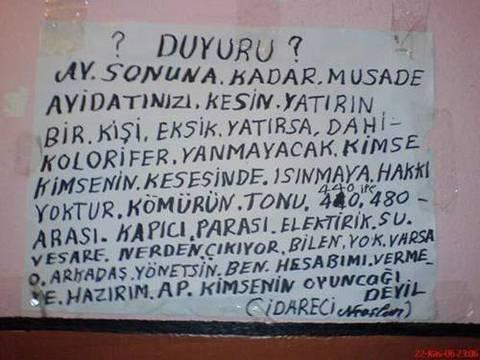 ? DUYURU ?
AY. SONUNA. KADAR. MUSADE
AYIDATINIZI. KESİN. YATIRIN
BİR. KİŞİ. EKSİK. YATIRSA, DAHİ-
KOLORİFER. YANMAYACAK. KİMSE
KİMSENİN. KESESİNDE. ISINMAYA. HAKKI
YOKTUR. KÖMÜRÜN. TONU. 440 480-
ARASI. KAPICI. PARASI. ELEKTİRİK. SU.
VESARE. NERDEN ÇIKIYOR. BİLEN. YOK. VARSA
O. ARKADAŞ. YÖNETSİN. BEN. HESABIMI. VERME-
E. HAZIRIM. AP. KİMSENİN OYUNCAĞI
DEYİL
(İDARECİ
22-Kas-06 23:06